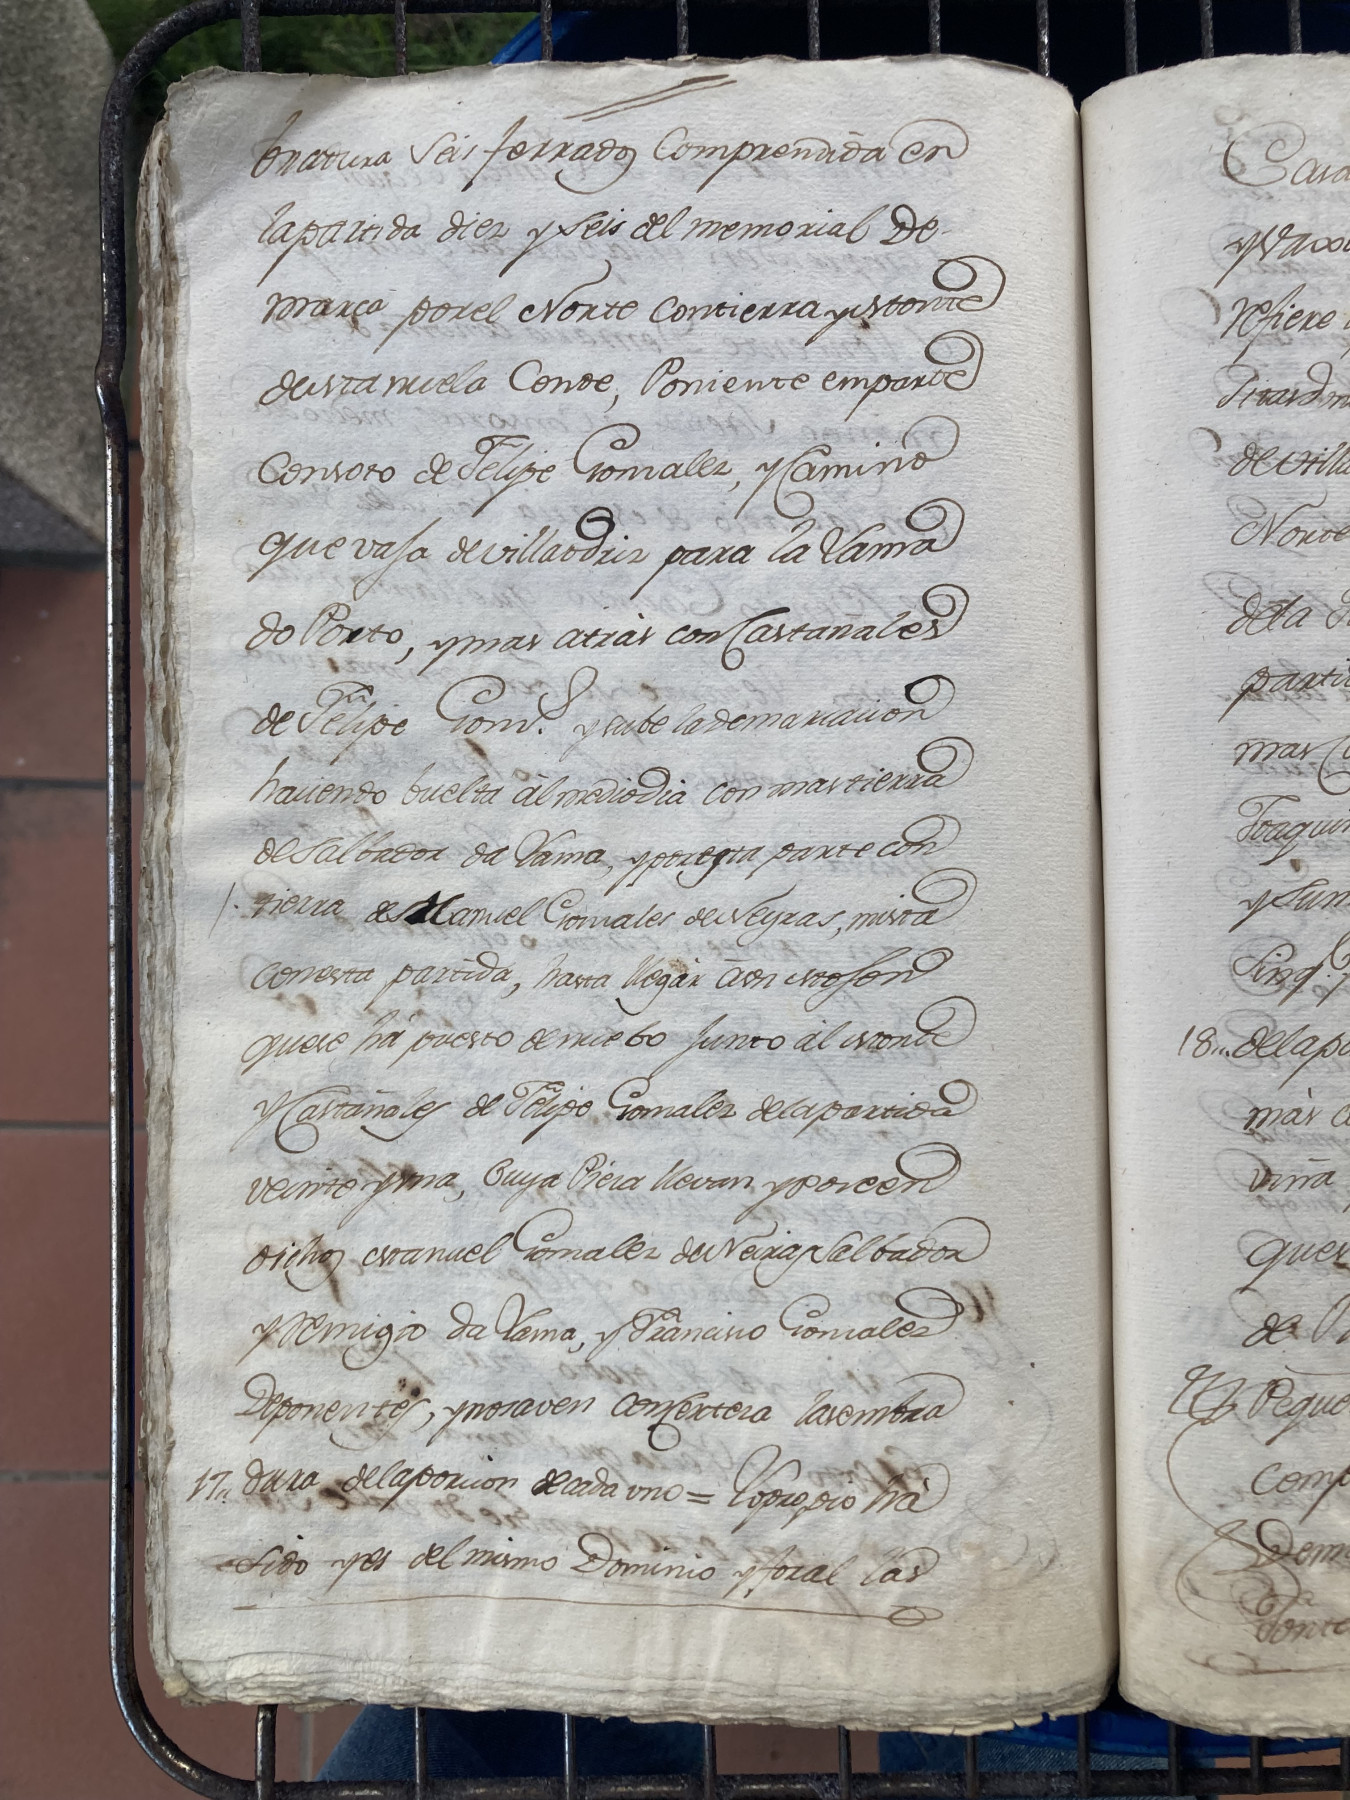 bratura Seis ferrados Comprendida en
la partida diez y seis del memorial De-
marca por el Norte con tierra y Monte
de Manuela Conde, Poniente en parte
con soto de Felipe Gonzalez, y Camino
que vaja de Villaodriz para la Vama
do Porto, y mas atrás con Castañales
de Felipe Gonz. y sube la demarcacion
haciendo buelta ál mediodia con mas tierra
de Salbador da Vama, y por esta parte con
tierra de Manuel Gonzales de Neyras, mista
con esta partida, hasta llegar á un Mojon
que se há puesto de nuebo Junto ál Monte
y Castañales de Felipe Gonzalez de la partida
veinte y una, Cuya Pieza llevan y poseen
dichos Manuel Gonzalez de Neira, Salbador
y Remigio da Vama, y Francisco Gonzalez
Deponentes, y no saven con certeza la sembra
17.. dura de la porcion de cada uno = Yo propio há
Sido y es del mismo Dominio y foral las
Casa
y Vaxo
refiere
de Villa
Norte
de la
partid
mas
Joaquin
y Sum
18... de la pa
más c
viña
que
de
Peque
Comp
Dem